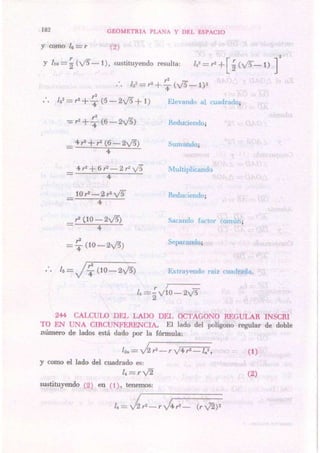 182 GEOMETRIA PLANA Y DEL ESPACIO
y como l₆ = r (2)
y l₁₀ = r/2 (√5 − 1), sustituyendo resulta: l₅² = r² + [ r/2 (√5 − 1) ]²
∴ l₅² = r² + r²/4 (√5 − 1)²
∴ l₅² = r² + r²/4 (5 − 2√5 + 1) Elevando al cuadrado;
= r² + r²/4 (6 − 2√5) Reduciendo;
= 4 r² + r² (6 − 2√5) / 4 Sumando;
= 4 r² + 6 r² − 2 r² √5 / 4 Multiplicando
= 10 r² − 2 r² √5 / 4 Reduciendo;
= r² (10 − 2√5) / 4 Sacando factor común;
= r²/4 (10 − 2√5) Separando;
∴ l₅ = √ r²/4 (10 − 2√5) Extrayendo raíz cuadrada.
l₅ = r/2 √10 − 2√5
244 CALCULO DEL LADO DEL OCTAGONO REGULAR INSCRI
TO EN UNA CIRCUNFERENCIA. El lado del polígono regular de doble
número de lados está dado por la fórmula:
l₂ₙ = √2 r² − r √4 r² − lₙ², (1)
y como el lado del cuadrado es:
l₄ = r √2 (2)
sustituyendo (2) en (1), tenemos:
l₈ = √2 r² − r √4 r² − (r √2)²